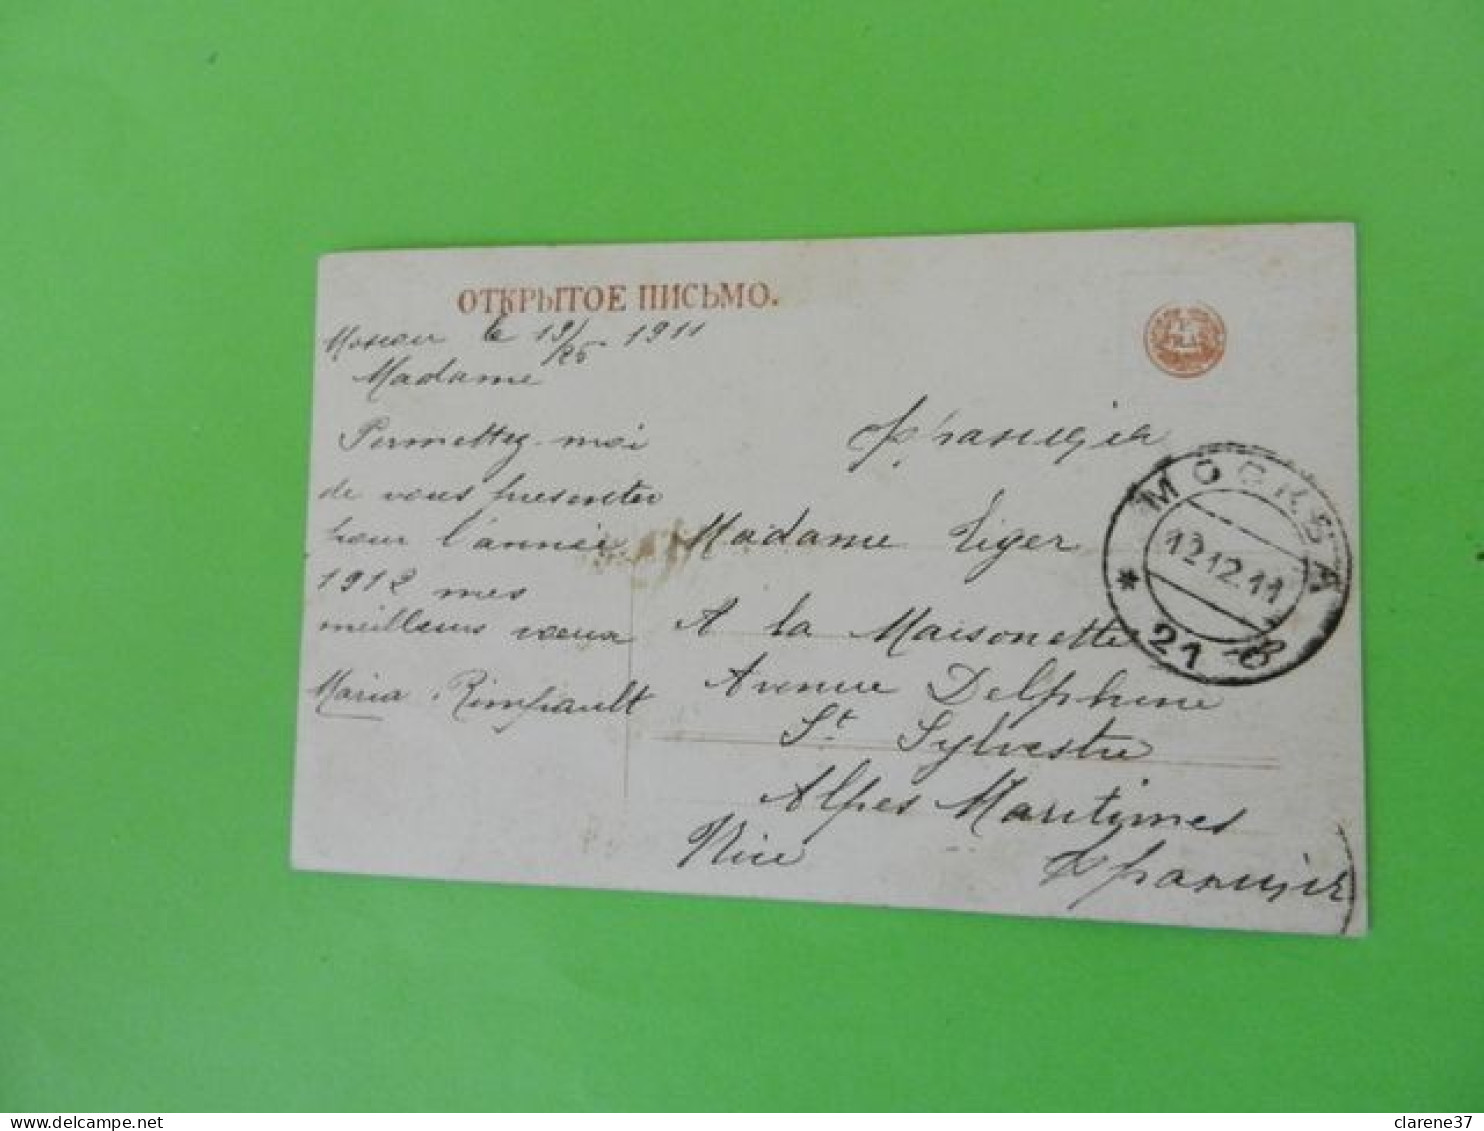 ОТКРЫТОЕ ПИСЬМО.
Moscou le 1911
Madame
Permettez-moi
de vous presenter
pour l'année
1912 mes
meilleurs voeux
Maria
Франція
Madame
A la Maisonette
Avenue Delphine
St Sylvestre
Alpes Maritimes
Nice Франція
МОСКВА
12.12.11
* 21
clarene37